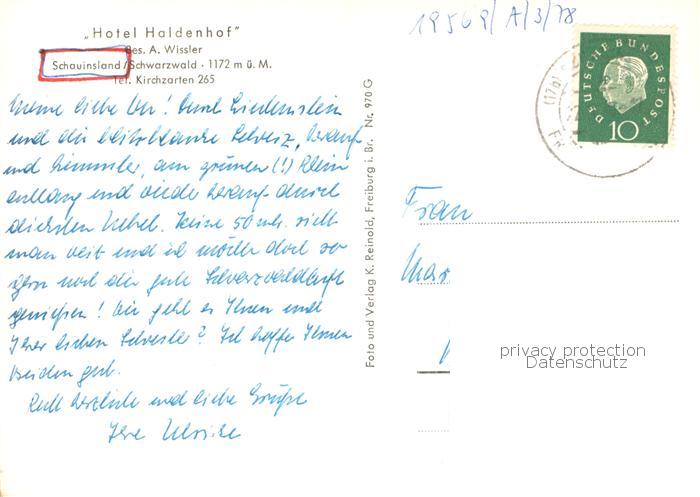 19569/A/3/78
„Hotel Haldenhof"
Bes. A. Wissler
Schauinsland/Schwarzwald · 1172 m ü. M.
Tel. Kirchzarten 265
DEUTSCHE BUNDESPOST
10
(17b)
Meine liebe ! Durch Liechtenstein
und die Schweiz, herauf
und hinunter, am grünen (!) Rhein
entlang und wieder herauf durch
dichten Nebel. Keine 50 mtr. sieht
man weit und ich möchte doch so
gern noch die gute Schwarzwaldluft
genießen! Wie geht es Ihnen und
Ihrer Schwester? Ich hoffe Ihnen
beiden gut.
Recht herzliche und liebe Grüße
Ihre Ulrike
Foto und Verlag K. Reinold, Freiburg i. Br. Nr. 970 G
Frau
privacy protection
Datenschutz